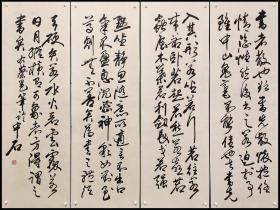 書者散也欲書先散懷抱任
情恣性然後書之若迫於事
雖中山兔毫不能佳也夫書先
入其形若坐若行若飛若動若往若
來若卧若起若愁若喜若
蟲食木葉若利劍長戈若強
默坐靜思隨意所適言不出口
氣不盈息沉密神彩如對至
尊則無不善矣為書之體須
弓硬矢若水火若雲霧若
日月縱橫有可象者方得謂之
書矣 蔡邕筆論 中石